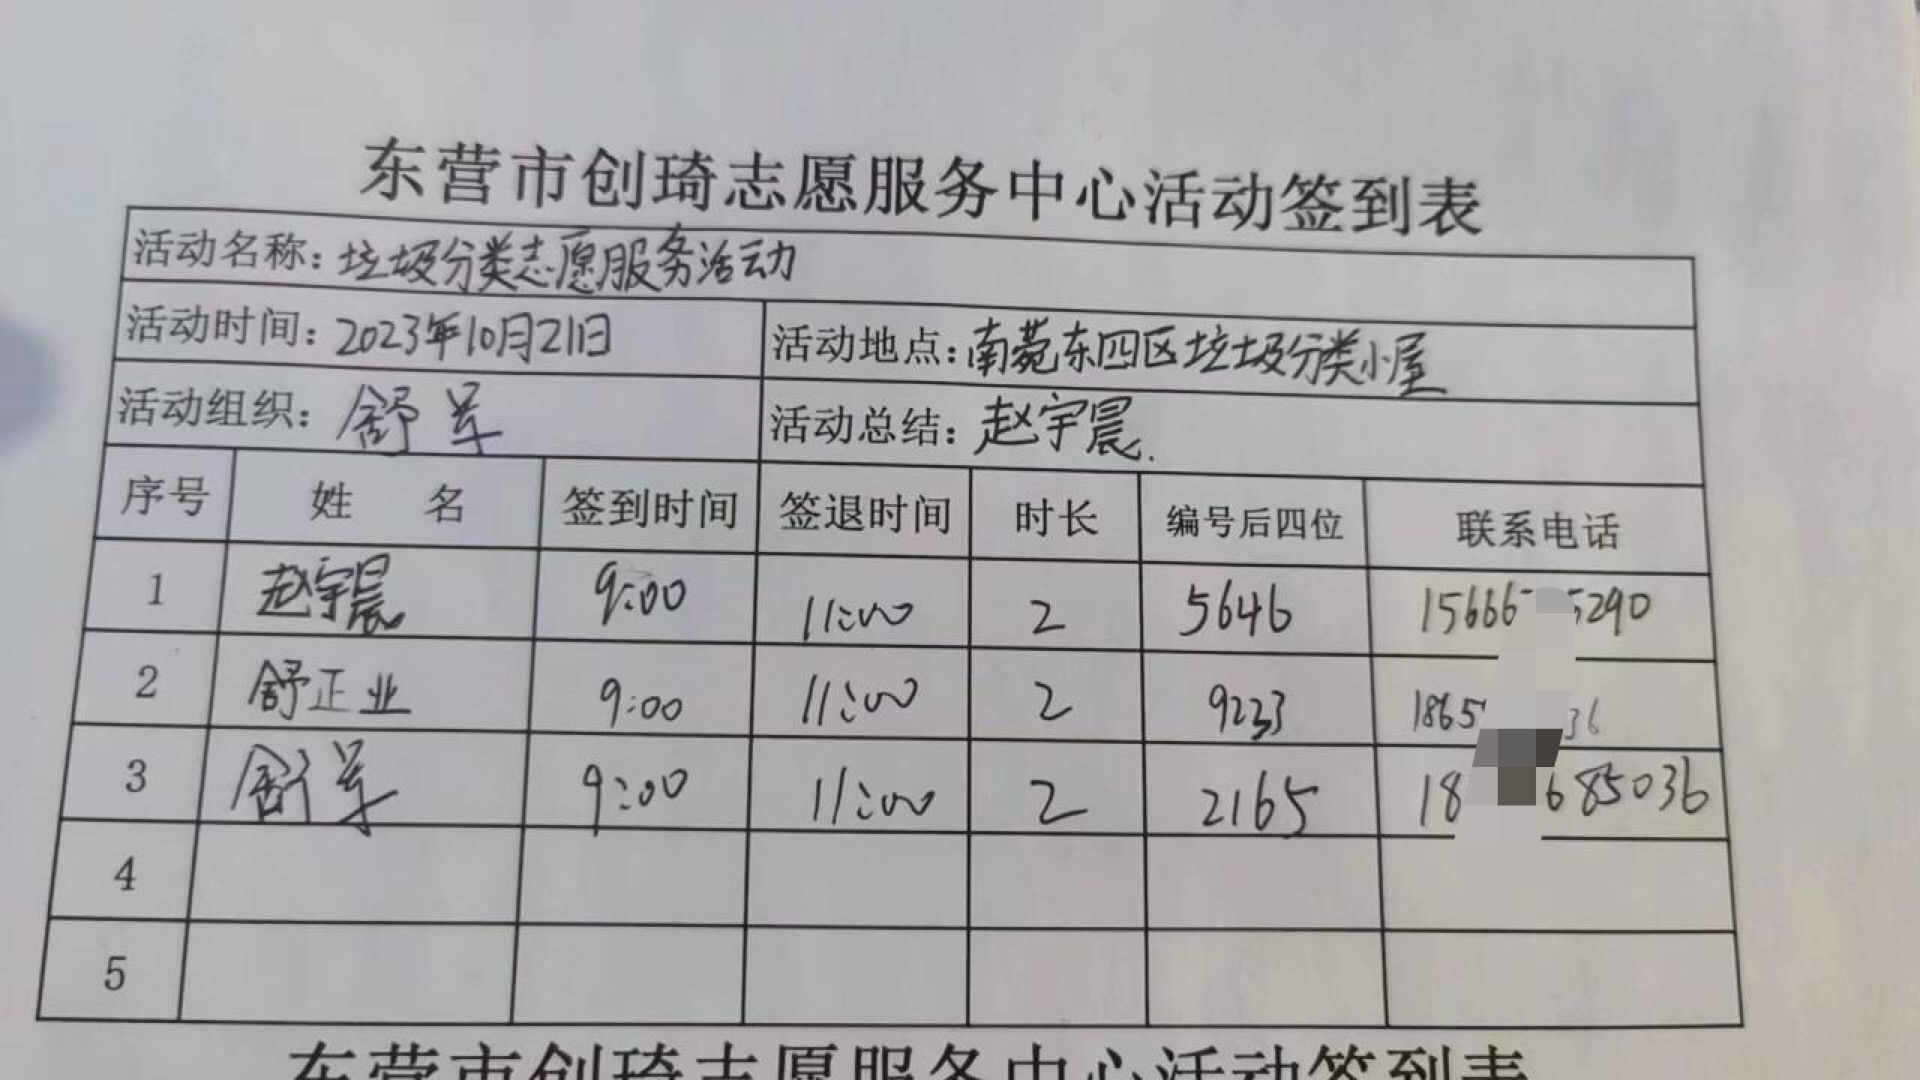 东营市创琦志愿服务中心活动签到表
活动名称：垃圾分类志愿服务活动
活动时间：2023年10月21日 活动地点：南苑东四区垃圾分类小屋
活动组织：舒军 活动总结：赵宇晨.
序号 姓名 签到时间 签退时间 时长 编号后四位 联系电话
1 赵宇晨 9:00 11:00 2 5646 15666 5290
2 舒正业 9:00 11:00 2 9233 1865 36
3 舒军 9:00 11:00 2 2165 18 685036
4
5
东营市创琦志愿服务中心活动签到表